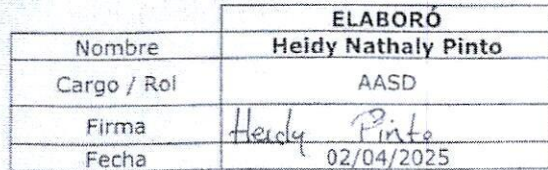 ELABORÓ
Nombre Heidy Nathaly Pinto
Cargo / Rol AASD
Firma Heidy Pinto
Fecha 02/04/2025